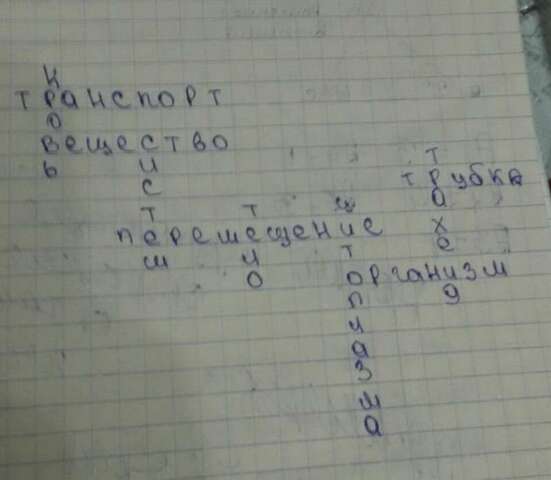 к
транспорт
о
вещество
т
ь и трубка
с а
т т ц х
перемещение е
м л т
о организм
п я
л
а
з
м
а